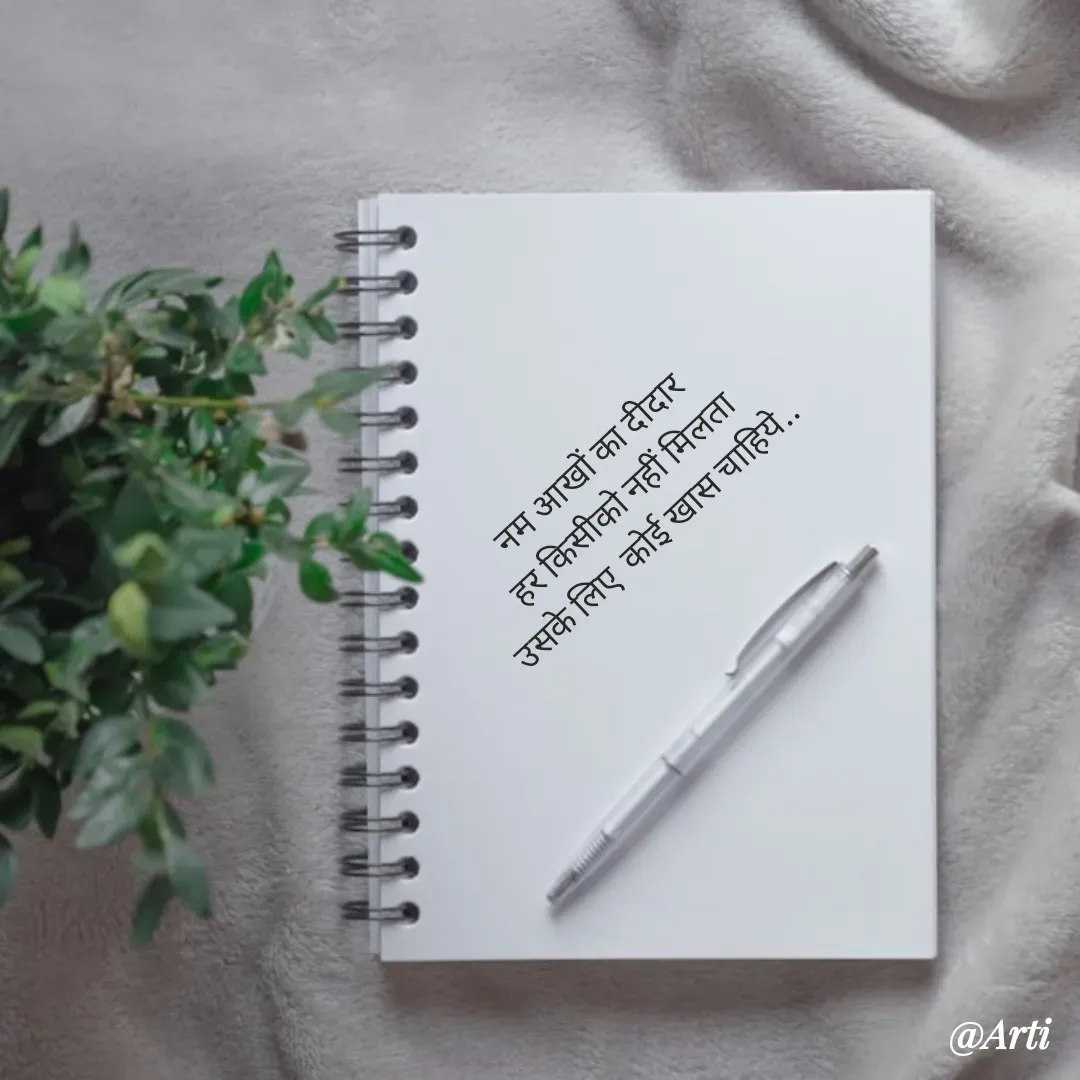 नम आखों का दीदार
हर किसीको नहीं मिलता
उसके लिए कोई खास चाहिये..
@Arti